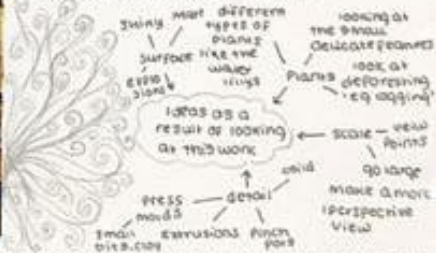 shiny
surface
explosions
make different
types of
plants
like the
water
lillys
Plants
looking at
the small
delicate features
look at
deforesting
'eg logging'
Ideas as a
result of looking
at this work
scale
view
points
go large
make a more
perspective
view
detail
press
molds
small
bits clay
extrusions
pinch
pots